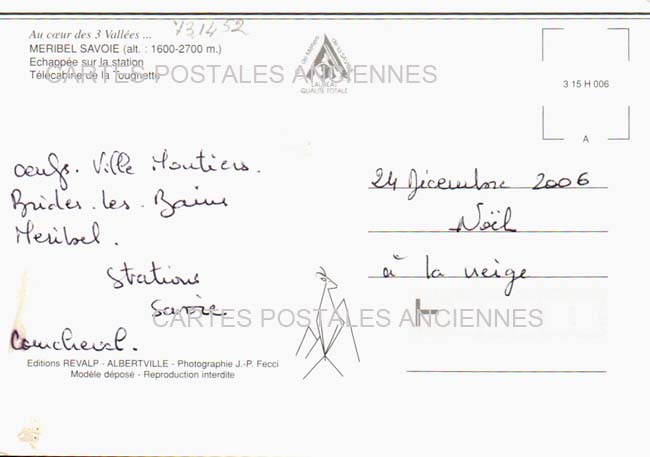 731452
Au cœur des 3 Vallées ...
MERIBEL SAVOIE (alt. : 1600-2700 m.)
Echappée sur la station
Télécabine de la Tougnette
CARTES POSTALES ANCIENNES
LAURÉAT
QUALITÉ TOTALE
3 15 H 006
A
oeufs. Ville Moutiers.
Brides. les. Bains
Meribel.
Stations
Savoie.
Courcheval.
24 Décembre 2006
Noël
à la neige
CARTES POSTALES ANCIENNES
Editions REVALP - ALBERTVILLE - Photographie J.-P. Fecci
Modèle déposé - Reproduction interdite